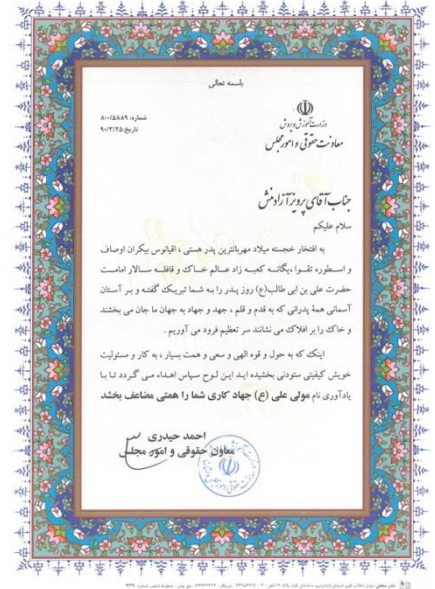 باسمه تعالی
شماره: ۸۰۰/۵۸۸۹
تاریخ: ۹۰/۳/۲۵
وزارت آموزش و پرورش
معاونت حقوقی و امور مجلس
جناب آقای پرویز آزادمنش
سلام علیکم
به افتخار خجسته میلاد مهربانترین پدر هستی ، اقیانوس بیکران اوصاف
و اسطوره تقوا ،یگانه کعبه زاد عالم خاک و قافله سالار امامت
حضرت علی بن ابی طالب(ع) روز پدر را به شما تبریک گفته و بر آستان
آسمانی همۀ پدرانی که به قدم و قلم ، جهد و جهاد به جهان ما جان می بخشند
و خاک را بر افلاک می نشانند سر تعظیم فرود می آوریم .
اینک که به حول و قوه الهی و سعی و همت بسیار ، به کار و مسئولیت
خویش کیفیتی ستودنی بخشیده اید این لوح سپاس اهداء می گردد تا با
یادآوری نام مولی علی (ع) جهاد کاری شما را همتی مضاعف بخشد
احمد حیدری
معاون حقوقی و امور مجلس